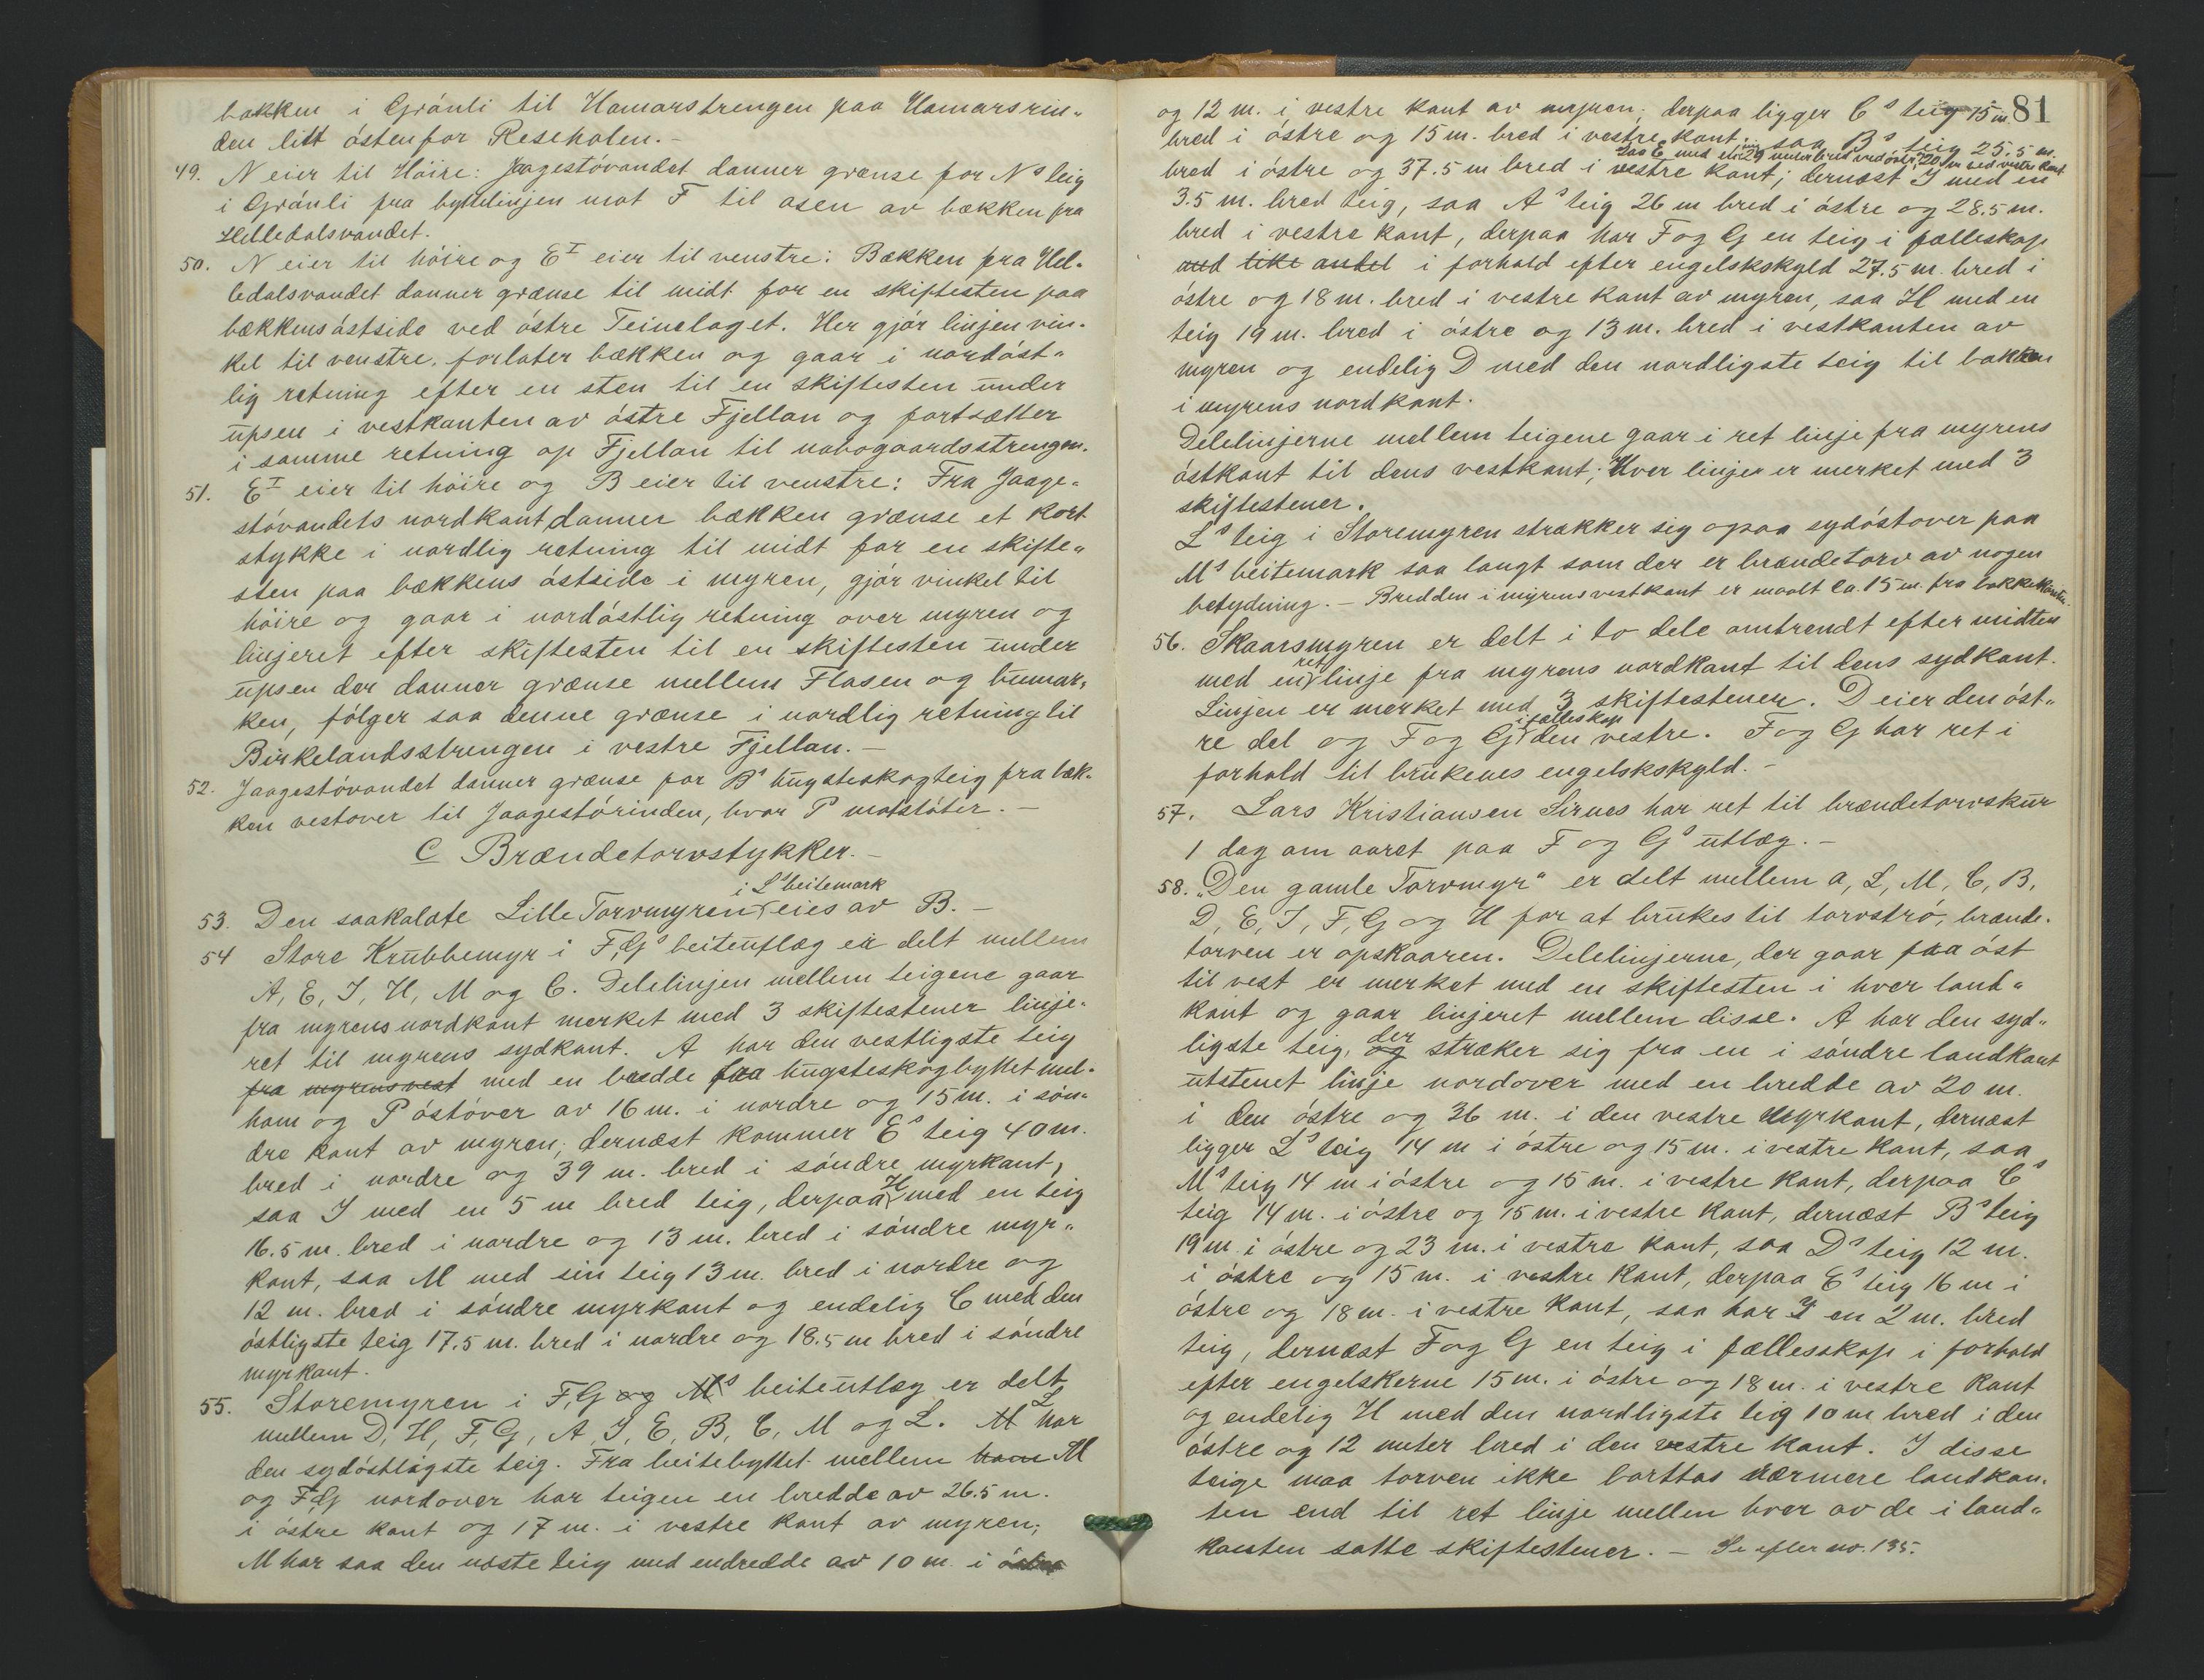 bakken i Gránli til Hamarstrengen paa Hamarsrin-
den litt östenfor Reseholen.-
49. N eier til Höire: Jaagestövandet danner grænse for Ns teig
i Gránli fra byttelinjen mot F til osen av bækken fra
Helledalsvandet.
50. N eier til höire og EI eier til venstre: Bækken fra Hel-
ledalsvandet danner grænse til midt for en skiftesten paa
bækkens östside ved östre Teinelaget. Her gjör linjen vin-
kel til venstre, forlater bækken og gaar i nordöst-
lig retning efter en sten til en skiftesten under
upsen i vestkanten av östre Fjellan og fortsætter
i samme retning op Fjellan til nabogaardsstrengen.
51. EI eier til höire og B eier til venstre: Fra Jaage-
stövandets nordkant danner bækken grænse et kort
stykke i nordlig retning til midt for en skifte-
sten paa bækkens östside i myren, gjör vinkel til
höire og gaar i nordöstlig retning over myren og
linjeret efter skiftesten til en skiftesten under
upsen der danner grænse mellem Flasen og humar-
ken, fölger saa denne grænse i nordlig retning til
Birkelandsstrengen i vestre Fjellan.-
52. Jaagestövandet danner grænse for Bs hugsteskogteig fra bæk-
ken vestover til Jaagestörinden, hvor P motstöter.-
C Brændetorvstykker.-
i Ls beitemark
53. Den saakaldte Lille Torvmyren eies av B.-
54 Store Krubbemyr i F,Gs beiteutlæg er delt mellem
A, E, I, H, M og C. Delelinjen mellem teigene gaar
fra myrens nordkant merket med 3 skiftestener linje-
ret til myrens sydkant. A har den vestligste teig
fra myrens vest med en bredde fra hugsteskogbyttet mel-
ham og P östover av 16 m. i nordre og 15 m. i sön-
dre kant av myren, dernæst kommer Es teig 40 m.
bred i nordre og 39 m. bred i söndre myrkant,
saa I med en 5 m bred teig, derpaa H med en teig
16.5 m. bred i nordre og 13 m. bred i söndre myr-
kant, saa M med sin teig 13 m. bred i nordre og
12 m. bred i söndre myrkant og endelig C med den
östligste teig 17.5 m. bred i nordre og 18.5 m bred i söndre
myrkant.
55. Storemyren i F,G og Ms beiteutlæg er delt
mellem D, H, F, G, A, I, E, B, C, M og L. M L har
den sydöstligste teig. Fra beitebyttet mellem ham M
og F,G nordover har teigen en bredde av 26.5 m.
i östre kant og 17 m. i vestre kant av myren;
M har saa den næste teig med en bredde av 10 m. i östre
81
og 12 m. i vestre kant av myren; derpaa ligger Cs teig 15 m.
bred i östre og 15 m. bred i vestre kant; saa Bs teig 25.5 m.
saa E med en teig 29 meter bred ved östre, 20 m ved vestre kant
bred i östre og 37.5 m bred i vestre kant; dernæst I med en
3.5 m. bred teig, saa As teig 26 m bred i östre og 28.5 m.
bred i vestre kant, derpaa har F og G en teig i fælleskap
med like andel i forhold efter engelskskyld 27.5 m. bred i
östre og 18 m. bred i vestre kant av myren, saa H med en
teig 19 m. bred i östre og 13 m. bred i vestkanten av
myren og endelig D med den nordligste teig til bakken
i myrens nordkant.
Delelinjerne mellem teigene gaar i ret linje fra myrens
östkant til dens vestkant; Hver linje er merket med 3
skiftestener.
Ls teig i Storemyren strækker sig ogsaa sydöstover paa
Ms beitemark saa langt som der er brændetorv av nogen
betydning.- Bredden i myrens vestkant er maalt ca. 15 m. fra bakkekanten.
56. Skaarsmyren er delt i to dele omtrendt efter midten
med en ret linje fra myrens nordkant til dens sydkant.
Linjen er merket med 3 skiftestener. D eier den öst-
re del og F og G i fælleskap den vestre. F og G har ret i
forhold til brukenes engelskskyld.-
57. Lars Kristiansen Sirnes har ret til brændetorvskur
1 dag om aaret paa F og Gs utlæg.-
58. "Den gamle Torvmyr" er delt mellem A, L, M, C, B,
D, E, I, F, G og H for at brukes til torvströ, brænde-
torven er opskaaren. Delelinjerne, der gaar fra öst
til vest er merket med en skiftesten i hver land-
kant og gaar linjeret mellem disse. A har den syd-
ligste teig, og der stræker sig fra en i söndre landkant
utstenet linje nordover med en bredde av 20 m.
i den östre og 36 m. i den vestre myrkant, dernæst
ligger Ls teig 14 m i östre og 15 m. i vestre kant, saa
Ms teig 14 m i östre og 15 m. i vestre kant, derpaa Cs
teig 14 m. i östre og 15 m. i vestre kant, dernæst Bs teig
19 m. i östre og 23 m. i vestre kant, saa Ds teig 12 m.
i östre og 15 m. i vestre kant, derpaa Es teig 16 m i
östre og 18 m. i vestre kant, saa har I en 2 m. bred
teig, dernæst F og G en teig i fællesskap i forhold
efter engelskerne 15 m. i östre og 18 m. i vestre kant
og endelig H med den nordligste teig 10 m bred i den
östre og 12 meter bred i den vestre kant. I disse
teige maa torven ikke borttas nærmere landkan-
ten end til ret linje mellem hver av de i land-
kanten satte skiftestener.- Se efter no. 135.